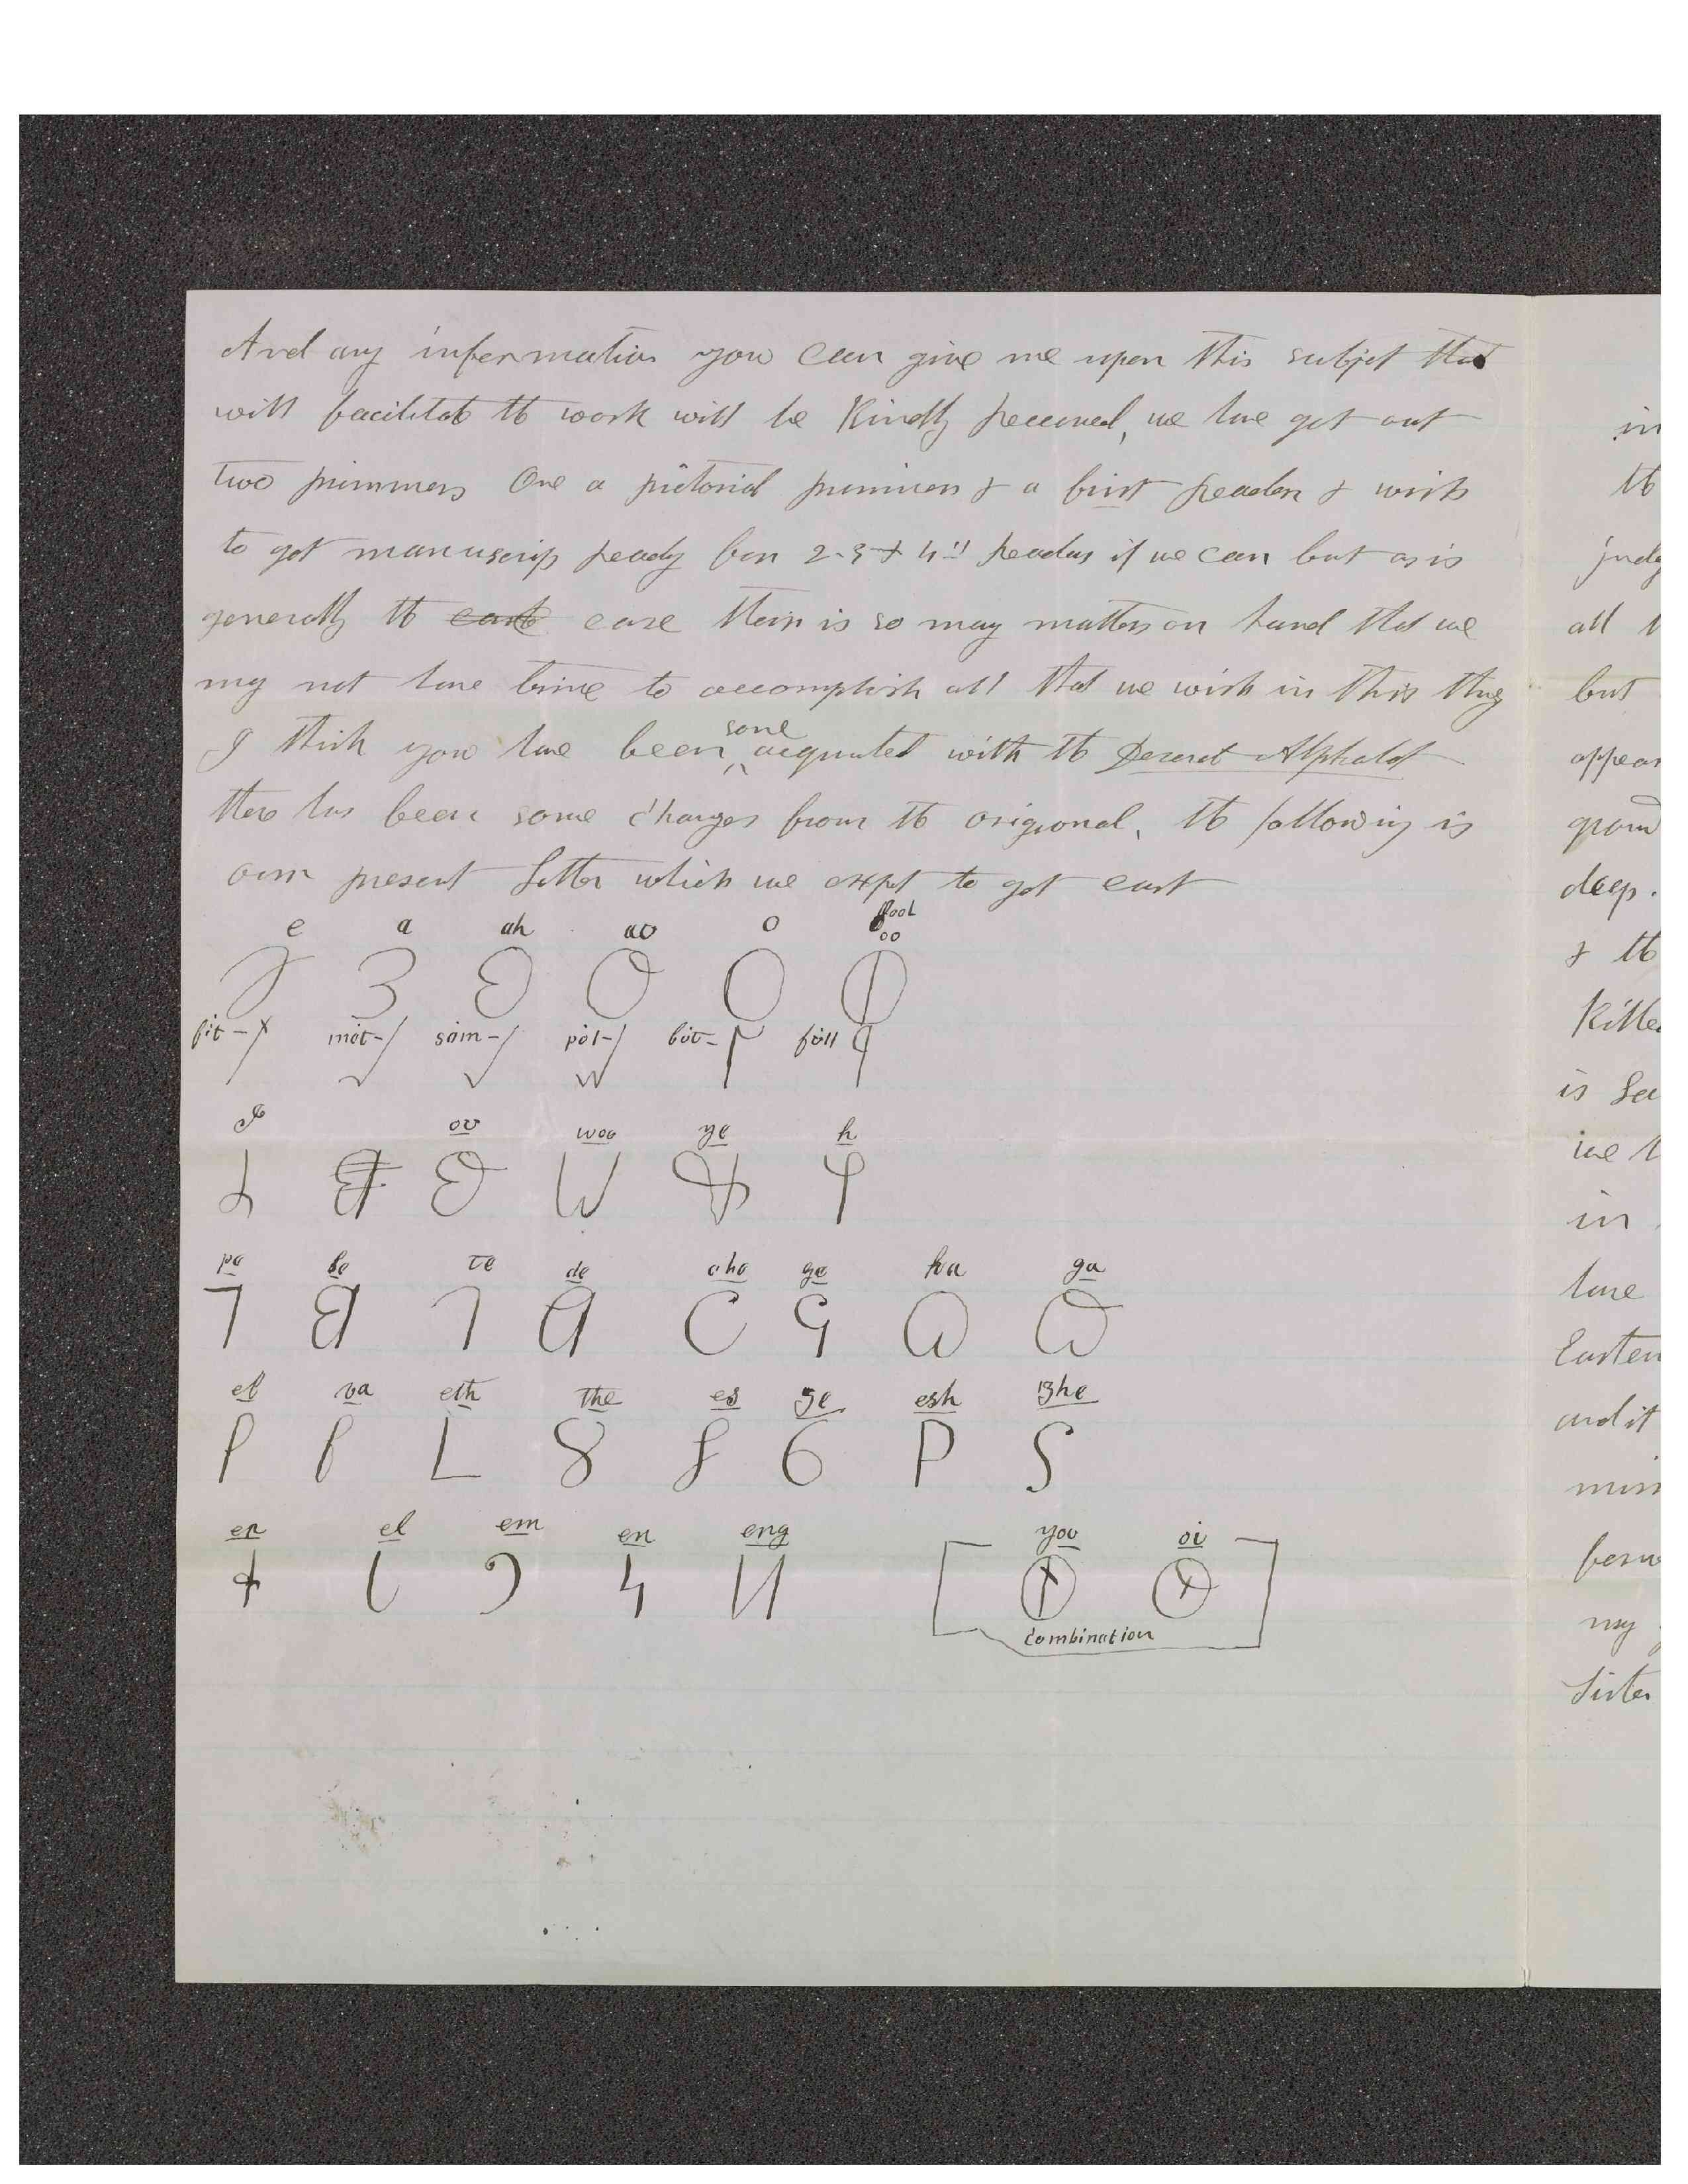 And any information you can give me upon this subjet that
will facilitate the work will be Kindly Received, we have got out
two primmers One a pictorial primmer & a first Reader & wish
to get manuscrip Ready for 2-3 & 4" Readers if we can but as is
generally the case case their is so many matters on hand that we
my not have time to accomplish all that we wish in this thing
some
I think you have been acquated with the Deseret Alphabet
there has been some changes from the origional, the following is
our present Letter which we expet to get cast
e a ah ao o fool
oo
𐐀 𐐁 𐐂 𐐃 𐐄 𐐅
fit - 𐐆 met - 𐐇 sam - 𐐈 pot - 𐐉 but - 𐐊 full 𐐋
I ow woo ye h
𐐌 𐐍 𐐎 𐐏 𐐐
pe be te de che ge ka ga
𐐑 𐐒 𐐓 𐐔 𐐕 𐐖 𐐗 𐐘
ef va eth the es ze esh zhe
𐐙 𐐚 𐐛 𐐜 𐐝 𐐞 𐐟 𐐠
er el em en eng you oi
𐐡 𐐢 𐐣 𐐤 𐐥 𐐧 𐐦
combination
in
the
judg
all
but
appear
grand
deep.
& the
Kille
is
we
in
have
Eastern
and it
my
Sister